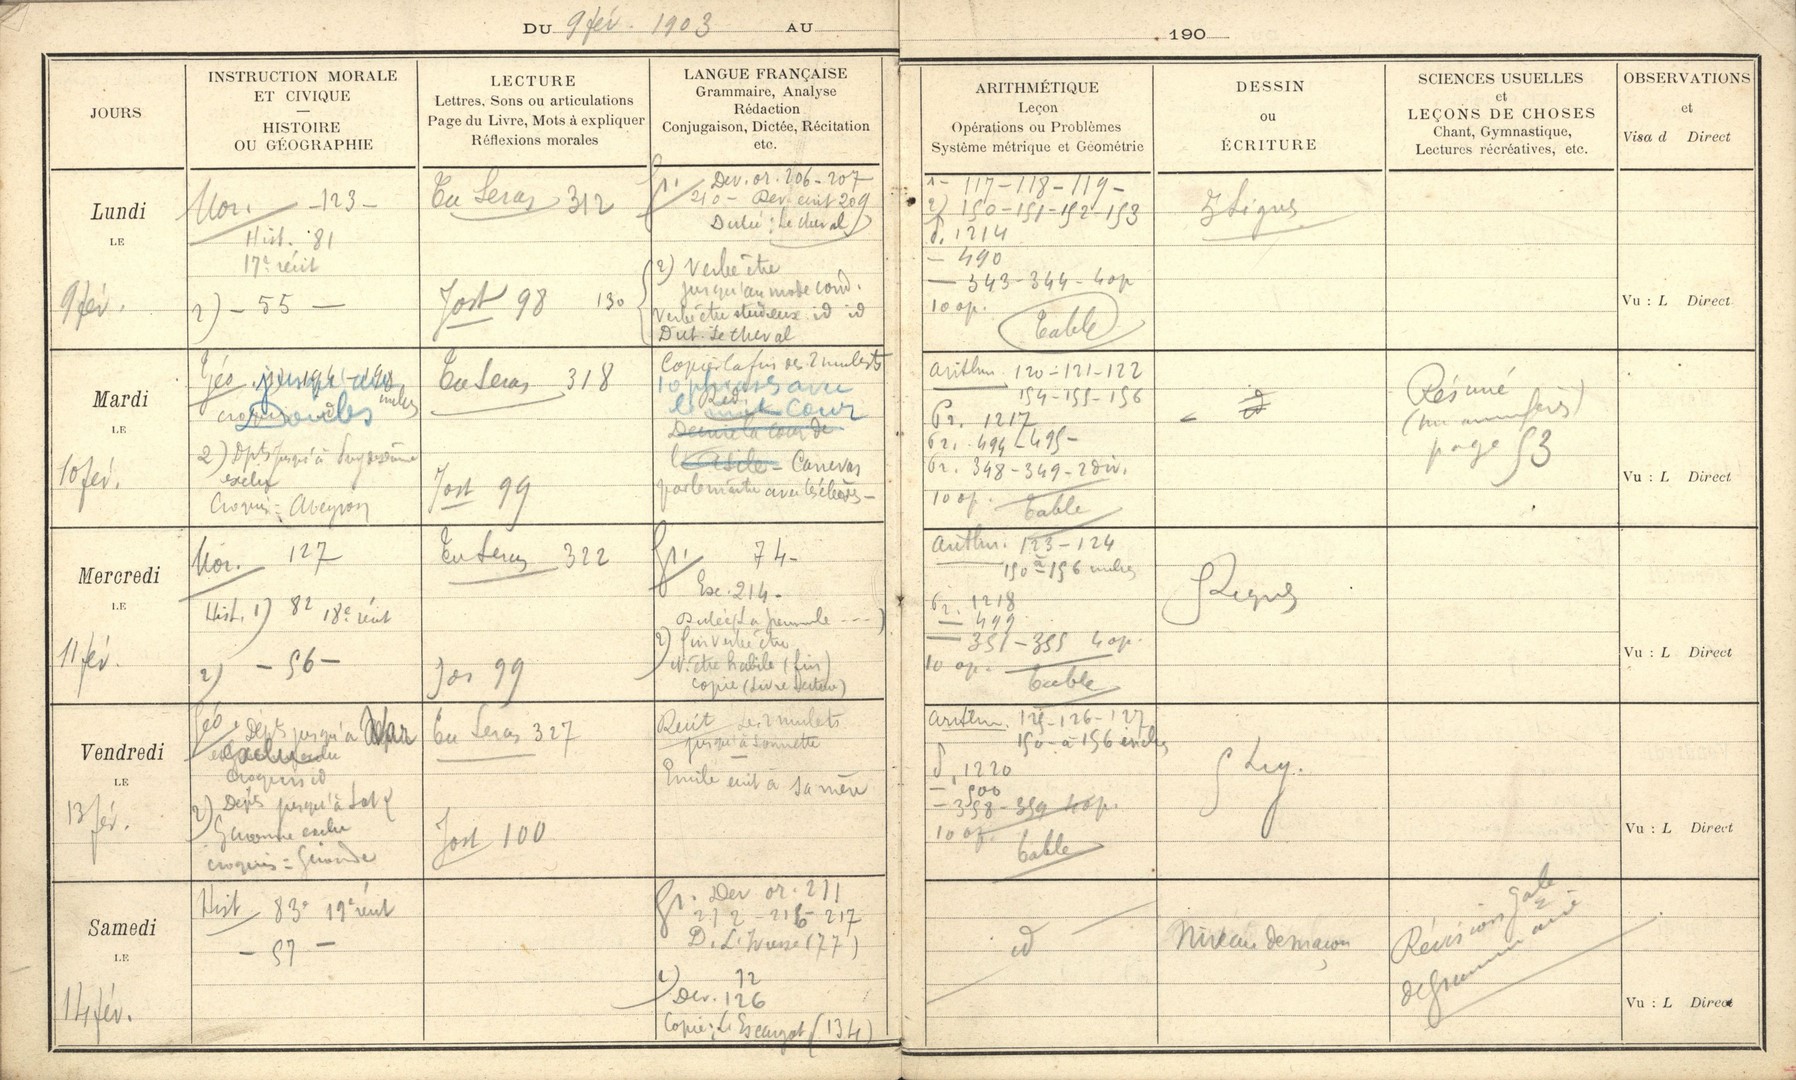 DU 9 fév. 1903 AU
190
JOURS
INSTRUCTION MORALE
ET CIVIQUE
—
HISTOIRE
OU GÉOGRAPHIE
LECTURE
Lettres, Sons ou articulations
Page du Livre, Mots à expliquer
Réflexions morales
LANGUE FRANÇAISE
Grammaire, Analyse
Rédaction
Conjugaison, Dictée, Récitation
etc.
ARITHMÉTIQUE
Leçon
Opérations ou Problèmes
Système métrique et Géométrie
DESSIN
ou
ÉCRITURE
SCIENCES USUELLES
et
LEÇONS DE CHOSES
Chant, Gymnastique,
Lectures récréatives, etc.
OBSERVATIONS
et
Visa d Direct
Lundi
LE
9 fév.
Mor. -123-
Hist. 81
17e récit
2) - 55 -
Tu Seras 312
Jost 98 130
Gr. Dev. or. 206-207
210 - Dev. écrit 209
Dictée : Le cheval
2) Verbe être
jusqu'au mode cond.
Verbe être studieux id id
Dict. Le cheval
1- 117-118-119-
2) 150-151-152-153
P. 1214
- 490
- 343-344-4 op
10 op.
Table
Lignes
Vu : L Direct
Mardi
LE
10 fév.
Géo. jusqu'aux
Doubs
2) Dpts jusqu'à Puy de Dôme
exclu
Croquis : Aveyron
Tu Seras 318
Jost 99
Copier la fin des 2 mulets
10 phrases avec
le mot cour
Décrire la cour de
l'Asile - Canevas
Arithm. 120-121-122
154-155-156
Pr. 1217
Pr. 494-495-
Pr. 348-349-2 div.
10 op.
Table
id
Résumé
page 53
Vu : L Direct
Mercredi
LE
11 fév.
Mor. 127
Hist. 1) 82 18e récit
2) - 56 -
Tu Seras 322
Jos 99
Gr. 74-
Exe. 214-
2) fin verbe être
V. être habile (fin)
copie (Livre Lecture)
Arithm. 123-124
150 à 156 inclus
Pr. 1218
- 499
- 351-355 4 op.
10 op.
Table
Lignes
Vu : L Direct
Vendredi
LE
13 fév.
Géo. Dépts jusqu'à Var
exclu
Croquis id
2) Dépts jusqu'à Lot &
Garonne exclu
croquis = Gironde
Tu Seras 327
Jost 100
Récit Les 2 mulets
jusqu'à sonnette
Emile écrit à sa mère
Arithm. 125-126-127
150-à 156 inclus
P. 1220
- 500
- 358-359 4 op.
10 op.
Table
Lig.
Vu : L Direct
Samedi
LE
14 fév.
Hist 83e 19e récit
- 57 -
Gr. Dev or. 211
212-216-217
72
Dev. 126
Copie : L'Escargot (134)
id
Niveau de maçon
Révision gale
de Grammaire
Vu : L Direct